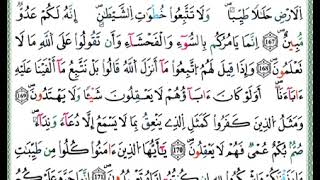 اِ۬لَارْضِ حَلَٰلاٗ طَيِّباٗ وَلَا تَتَّبِعُواْ خُطْوَٰتِ اِ۬لشَّيْطَٰنِ إِنَّهُۥ لَكُمْ عَدُوّٞ
مُّبِينٌ 167 اِنَّمَا يَامُرُكُم بِالسُّوٓءِ وَالْفَحْشَآءِ وَأَن تَقُولُواْ عَلَى اَ۬للَّهِ مَا لَا
تَعْلَمُونَۖ 168 وَإِذَا قِيلَ لَهُمُ اُ۪تَّبِعُواْ مَآ أَنزَلَ اَ۬للَّهُ قَالُواْ بَلْ نَتَّبِعُ مَآ أَلْفَيْنَا عَلَيْهِ
ءَابَآءَنَآۖ أَوَلَوْ كَانَ ءَابَآؤُهُمْ لَا يَعْقِلُونَ شَيْـٔاٗ وَلَا يَهْتَدُونَۖ 169
وَمَثَلُ اُ۬لذِينَ كَفَرُواْ كَمَثَلِ اِ۬لذِے يَنْعِقُ بِمَا لَا يَسْمَعُ إِلَّا دُعَآءٗ وَنِدَآءٗۖ
صُمُّۢ بُكْمٌ عُمْيٞ فَهُمْ لَا يَعْقِلُونَۖ 170 يَٰٓأَيُّهَا اَ۬لذِينَ ءَامَنُواْ كُلُواْ مِن طَيِّبَٰتِ